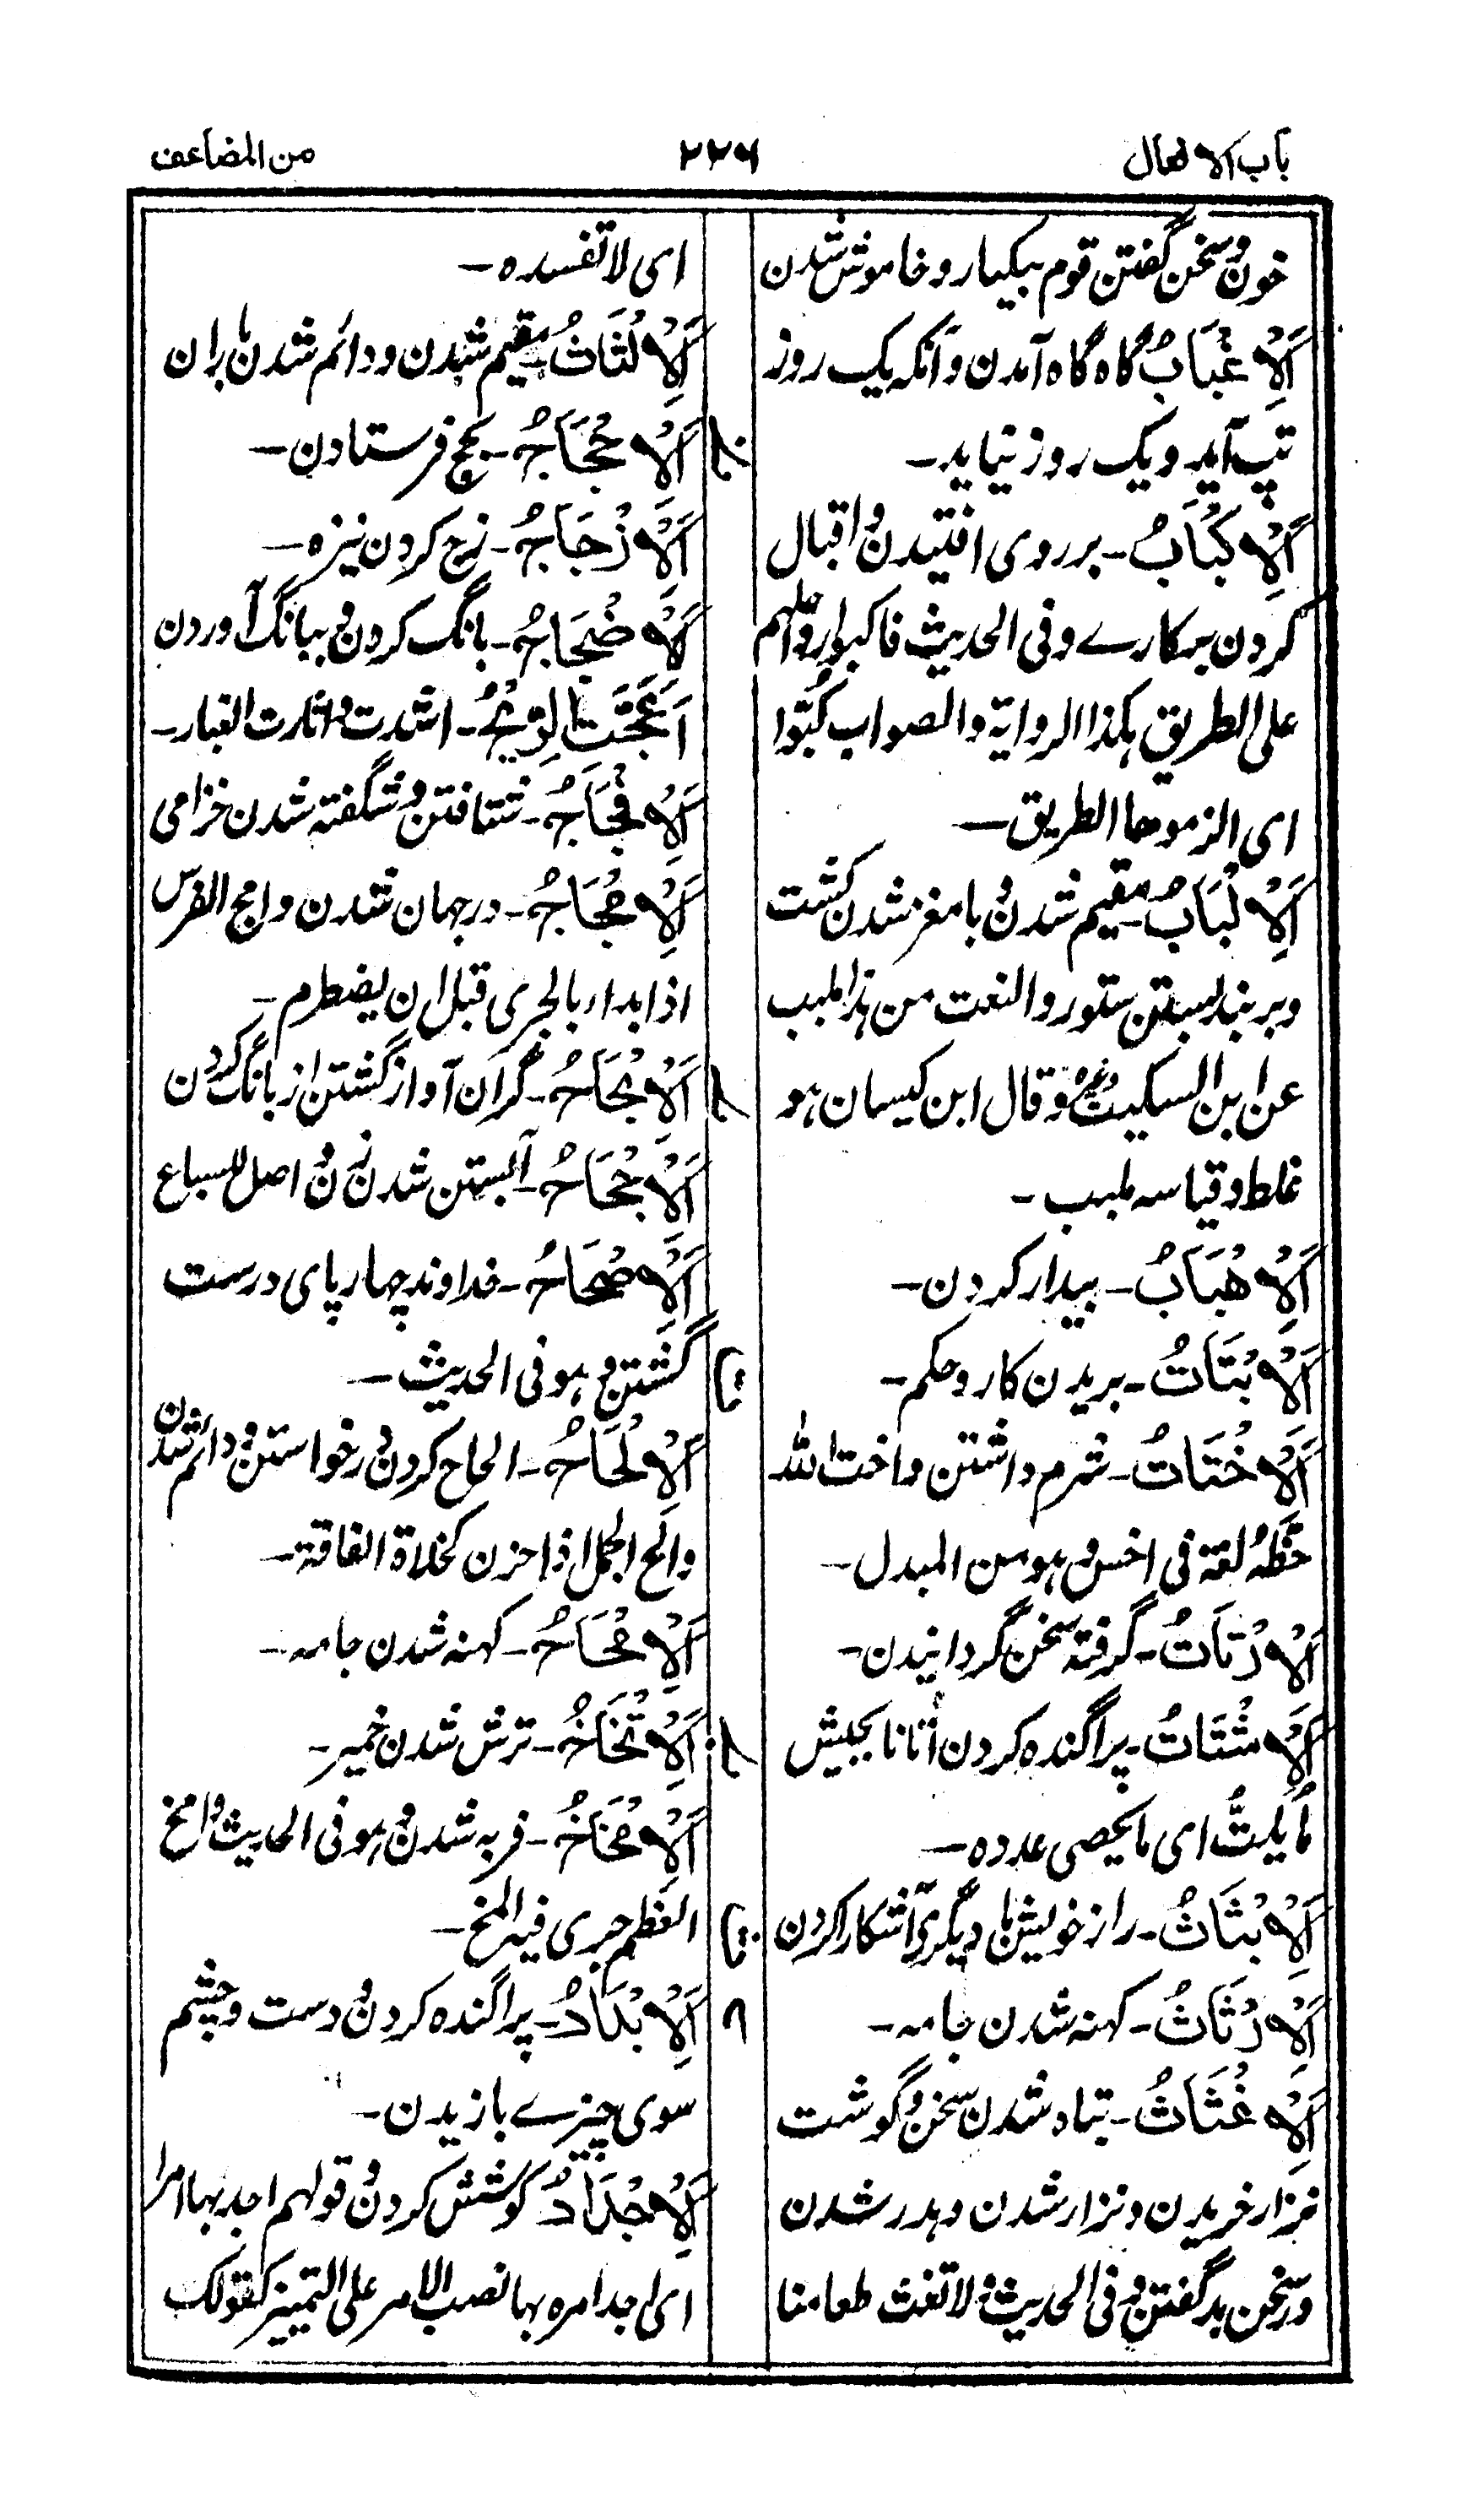 باب الافعال
٢٢٦
من المضاعف
خون و سخن گفتن قوم بیکبار و خاموش شدن
اَلْاِغْبَابُ گاه گاه آمدن و آنکه یک روز
تپ آید و یک روز نیاید۔
اَلْاِكْبَابُ۔ بر روی افتیدن و اقبال
کردن بر کارے و فی الحدیث فاکبوا رواحلهم
علی الطریق هکذا الروایة و الصواب کبّوا
ای الزموها الطریق۔
اَلْاِلْبَابُ۔ مقیم شدن و با مغز شدن کشت
و بربند بستن ستور و النعت من هذا ملبب
عن ابن السکیت و قال ابن کیسان هو
غلط و قیاسه ملبب۔
اَلْاِهْبَابُ۔ بیدار کردن۔
اَلْاِبْتَاتُ۔ بریدن کار و حکم۔
اَلْاِخْتَاتُ۔ شرم داشتن و اخت الله
حَظَّهُ لغة فی اخس و هو من المبدل۔
اَلْاِرْتَاتُ۔ گرفته سخن گردانیدن۔
اَلْاِشْتَاتُ۔ پراگنده کردن اتانا بجیش
مَا یُکَتُّ ای ما یحصی عدده۔
اَلْاِبْثَاثُ۔ راز خویش با دیگری آشکارا کردن
اَلْاِرْثَاثُ۔ کهنه شدن جامه۔
اَلْاِغْثَاثُ۔ تباه شدن سخن و گوشت
نزار خریدن و نزار شدن و هدر شدن
و سخن بد گفتن و فی الحدیث و لا تغث طعامنا
ای لا تفسده۔
اَلْاِلْثَاثُ۔ مقیم شدن و دائم شدن باران
اَلْاِحْجَاجُ۔ بحج فرستادن۔
ج
اَلْاِزْجَاجُ۔ زج کردن نیزه۔
اَلْاِضْجَاجُ۔ بانگ کردن و ببانگ آوردن
اَعَجَّتِ الرِّیْحُ۔ اشدت و اثارت الغبار۔
اَلْاِفْجَاجُ۔ شتافتن و شگفته شدن خزامی
اَلْاِمْجَاجُ۔ در جهان شدن و امج الفرس
اذا بدا ر بالجری قبل ان یضطرم۔
اَلْاِبْحَاحُ۔ گران آواز گشتن از بانگ کردن
ح
اَلْاِجْحَاحُ۔ آبستن شدن زن و اصل للسباع
اَلْاِصْحَاحُ۔ خداوند چهارپای درست
گشتن و هو فی الحدیث۔
ت
اَلْاِلْحَاحُ۔ الحاح کردن در خواستن و دائم شدن
و الح الجمل اذا حزن کخلاة الناقة۔
اَلْاِمْحَاحُ۔ کهنه شدن جامه۔
اَلْاِتْخَاخُ۔ ترش شدن خمیر۔
خ
اَلْاِمْخَاخُ۔ فربه شدن و هو فی الحدیث و امخ
العظم جری فیه المخ۔
ث
اَلْاِبْدَادُ۔ پراگنده کردن و دست و چشم
د
سوی چیزے بازیدن۔
اَلْاِجْدَادُ۔ کوشش کردن و قولهم اجد بها امرا
ای اجد امره بها نصب الامر علی التمییز کقولک